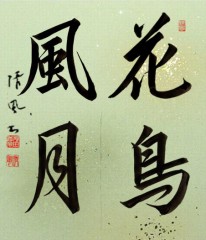 花鳥
風月
清風